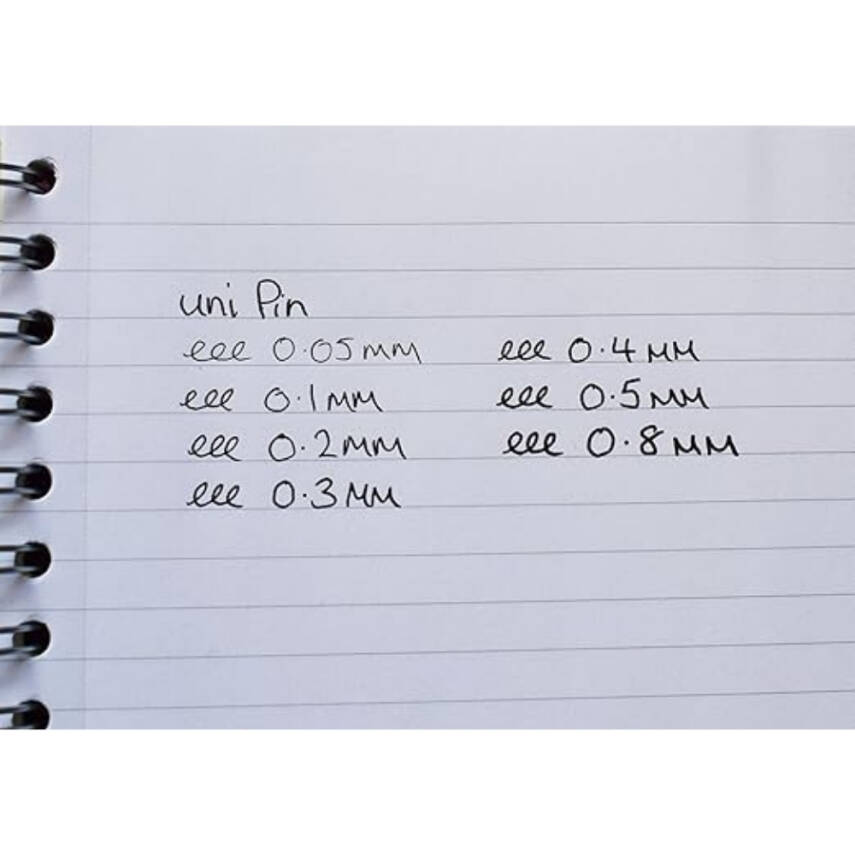 uni Pin
eee 0.05mm
eee 0.1mm
eee 0.2mm
eee 0.3mm
eee 0.4mm
eee 0.5mm
eee 0.8mm